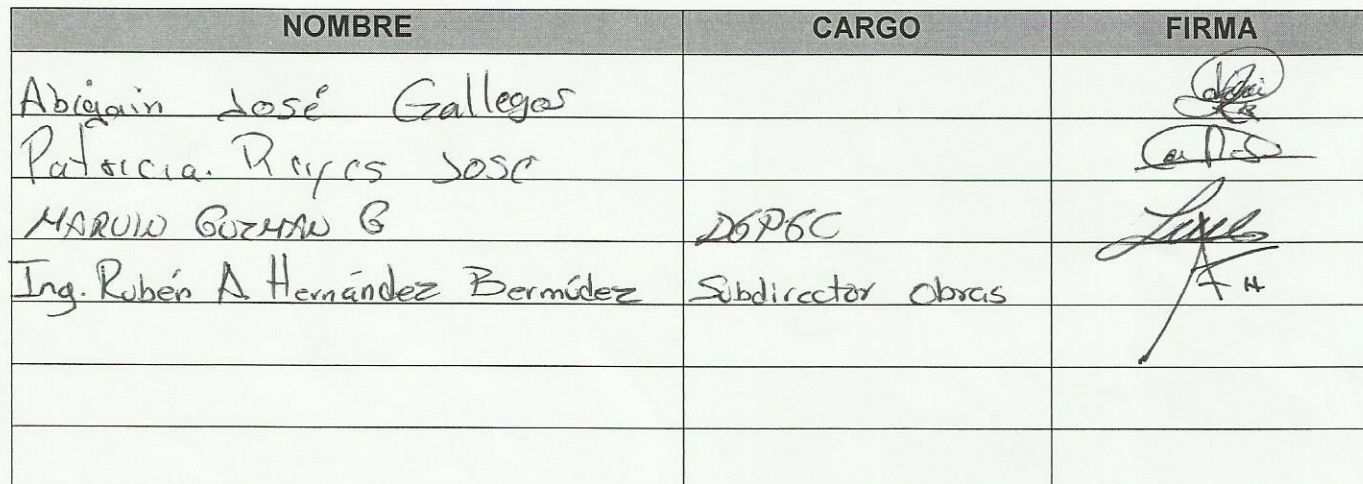 NOMBRE CARGO FIRMA
Abigain José Gallegos
Patricia. Reyes Jose
MARVIN GUZMAN G DGPGC
Ing. Rubén A Hernández Bermúdez Subdirector Obras